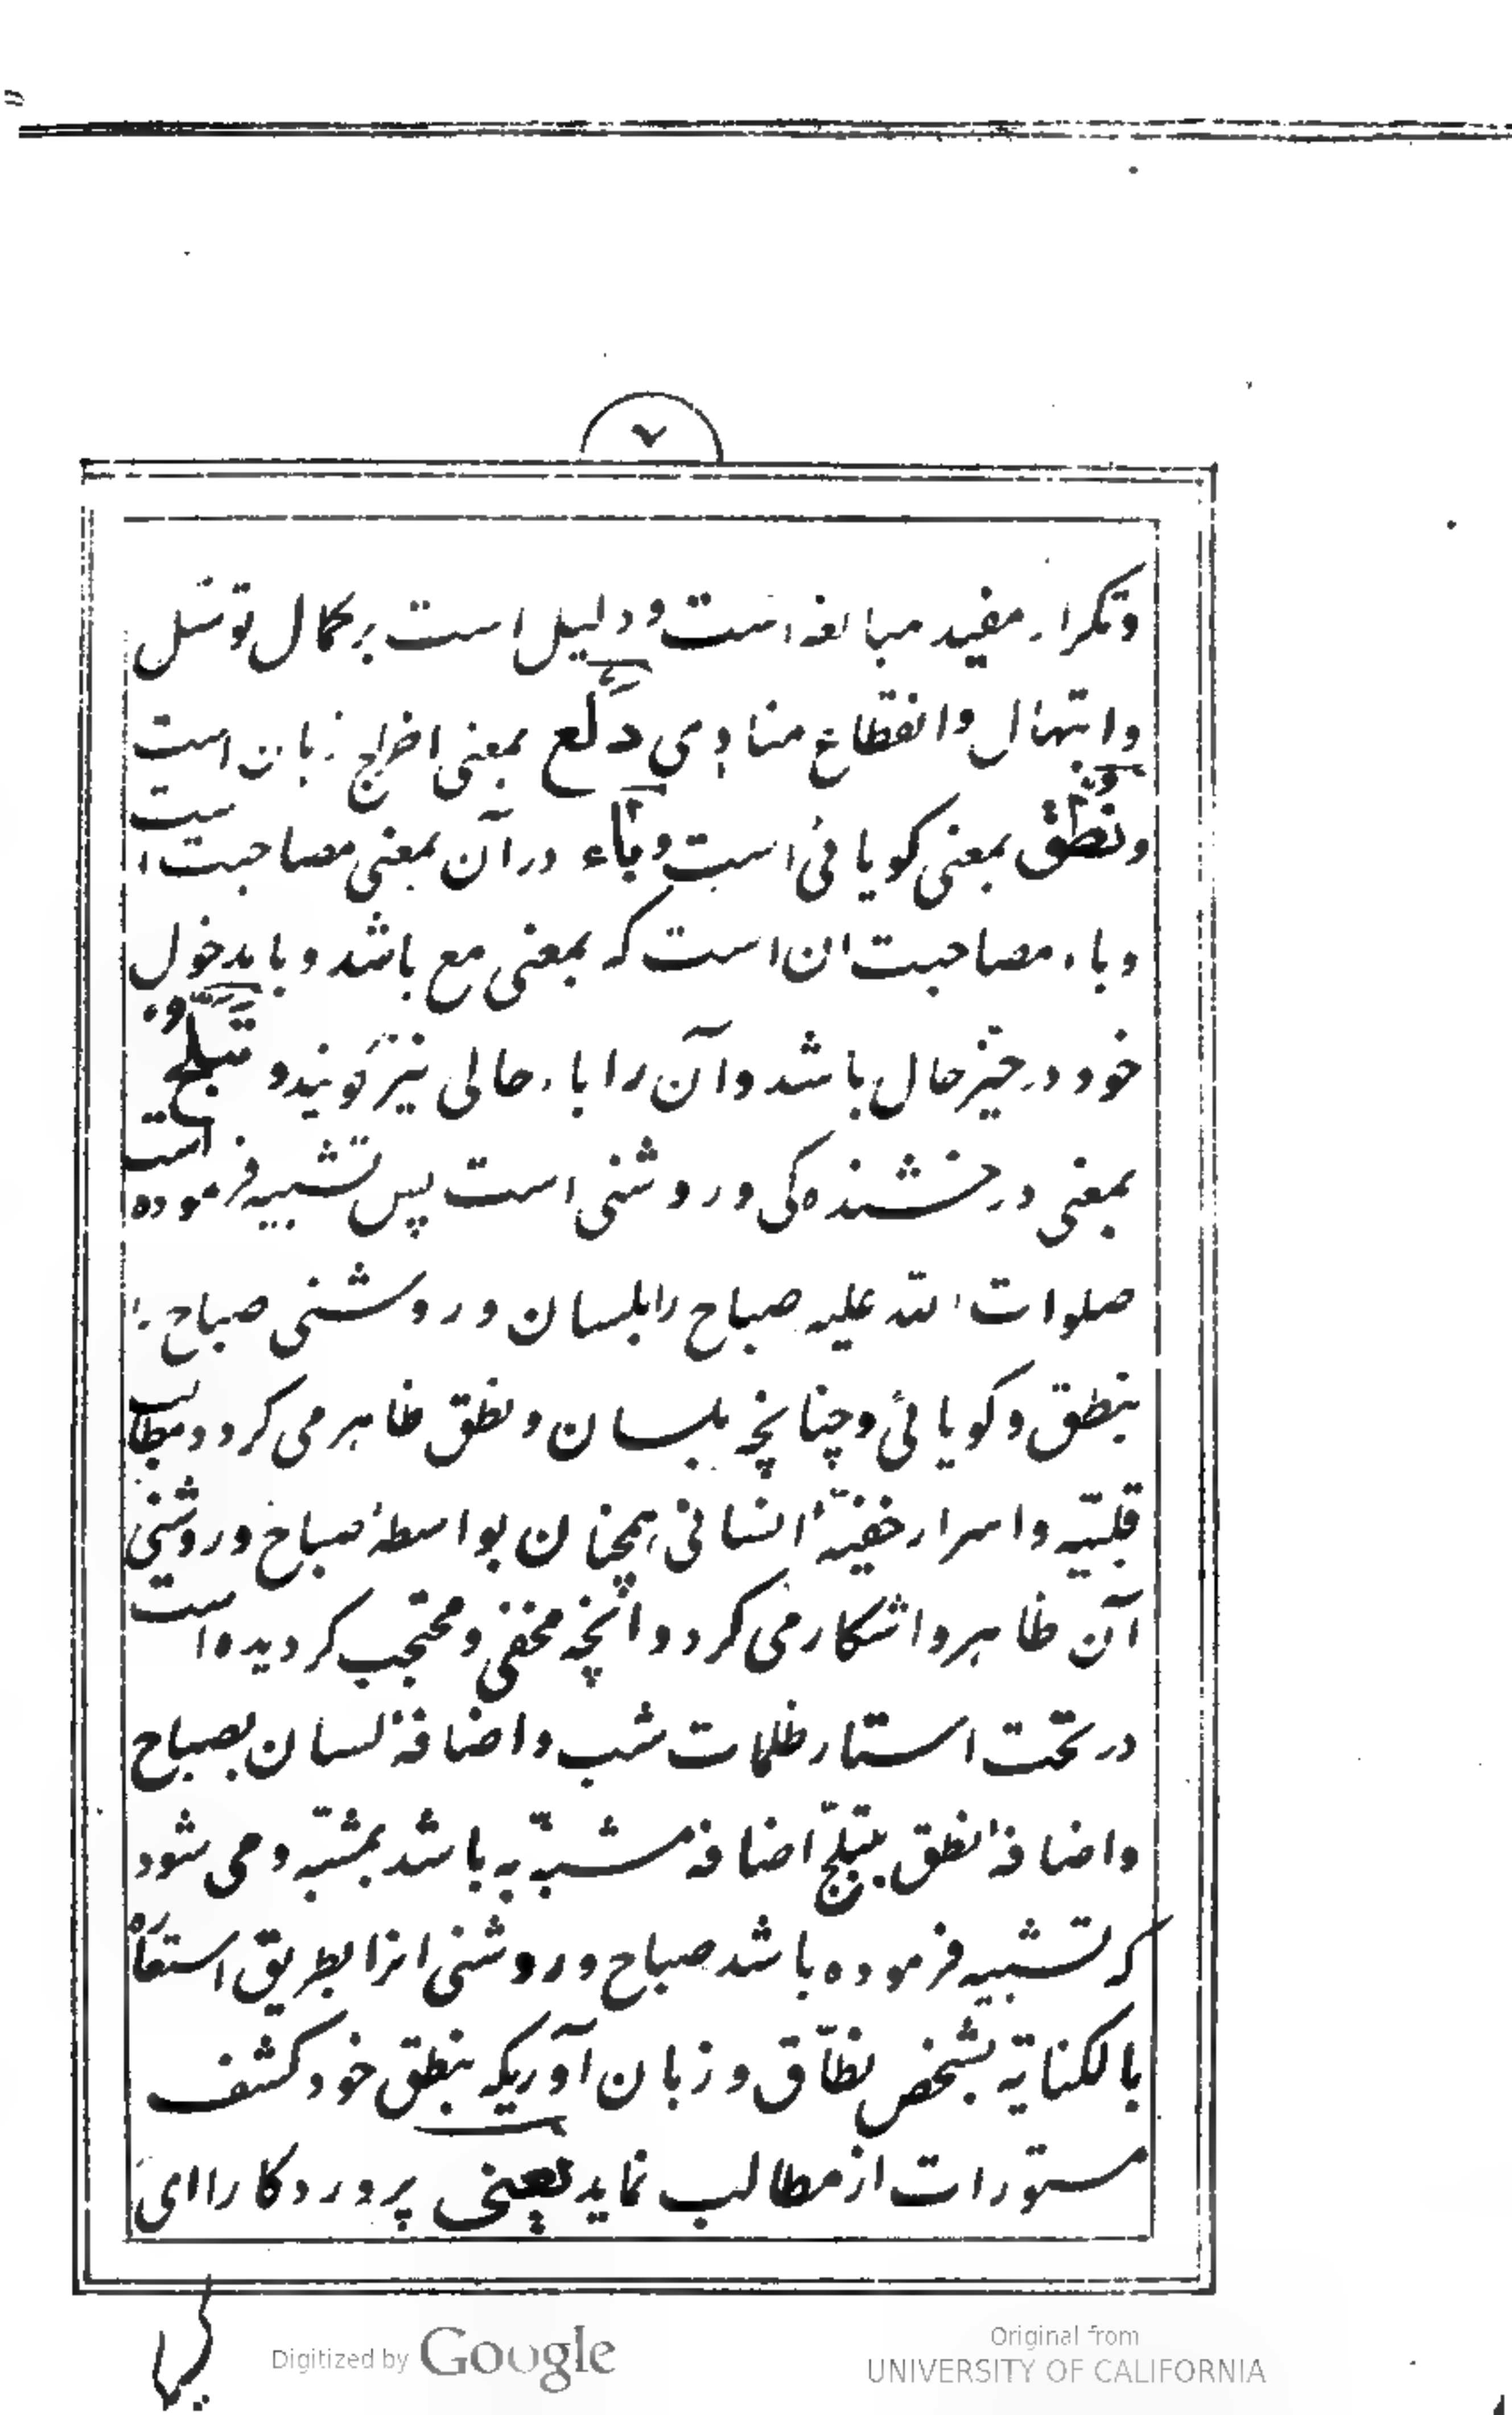 ۷
وتکرار مفید مبالغه است و دلیل است بر کمال توسّل
وابتهال وانقطاع منادی دلع بمعنی اخراج زبان است
ونطق بمعنی کویائی است وباء درآن بمعنی مصاحبت است
وباء مصاحبت ان است که بمعنی مع باشد وبا مدخول
خود در حیّز حال باشد وآن را باء حالی نیز کویند و تبلّج
بمعنی درخشنده کی وروشنی است پس تشبیه فرموده است
صلوات الله علیه صباح را بلسان وروشنی صباح را
بنطق وکویائی وچنانچه بلسان ونطق ظاهر می کردد مطالب
قلبیّه واسرار خفیّهٔ انسانی همچنان بواسطهٔ صباح وروشنی
آن ظاهر واشکار می کردد وانچه مخفی ومحتجب کردیده است
در تحت استار ظلمات شب واضافهٔ لسان بصباح
واضافهٔ نطق بتبلّج اضافهٔ مشبّه به باشد بمشبّه ومی شود
که تشبیه فرموده باشد صباح وروشنی انرا بطریق استعاره
بالکنایة بشخص نطّاق وزبان آوریکه بنطق خود کشف
مستورات از مطالب نماید یعنی پروردکارا ای
Digitized by Google
Original from
UNIVERSITY OF CALIFORNIA